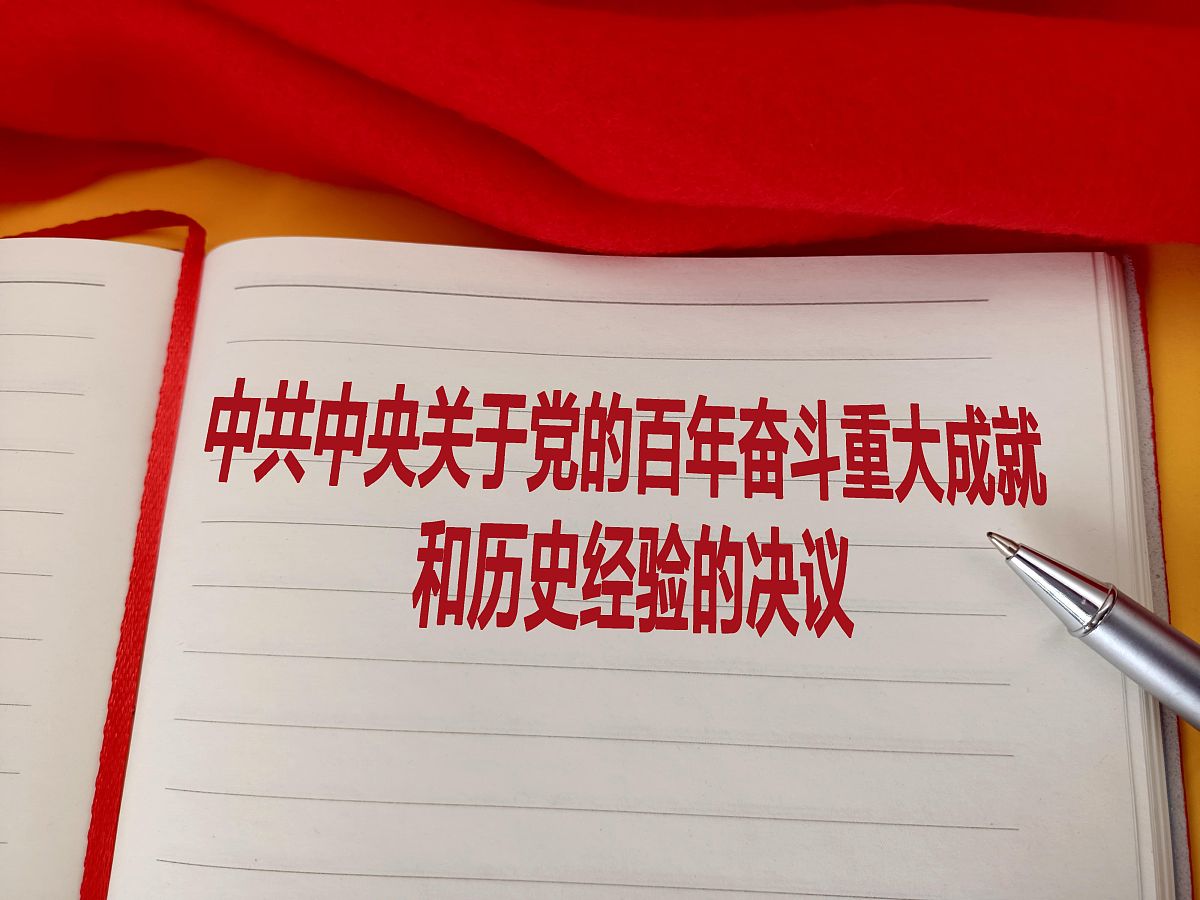 中共中央关于党的百年奋斗重大成就
和历史经验的决议